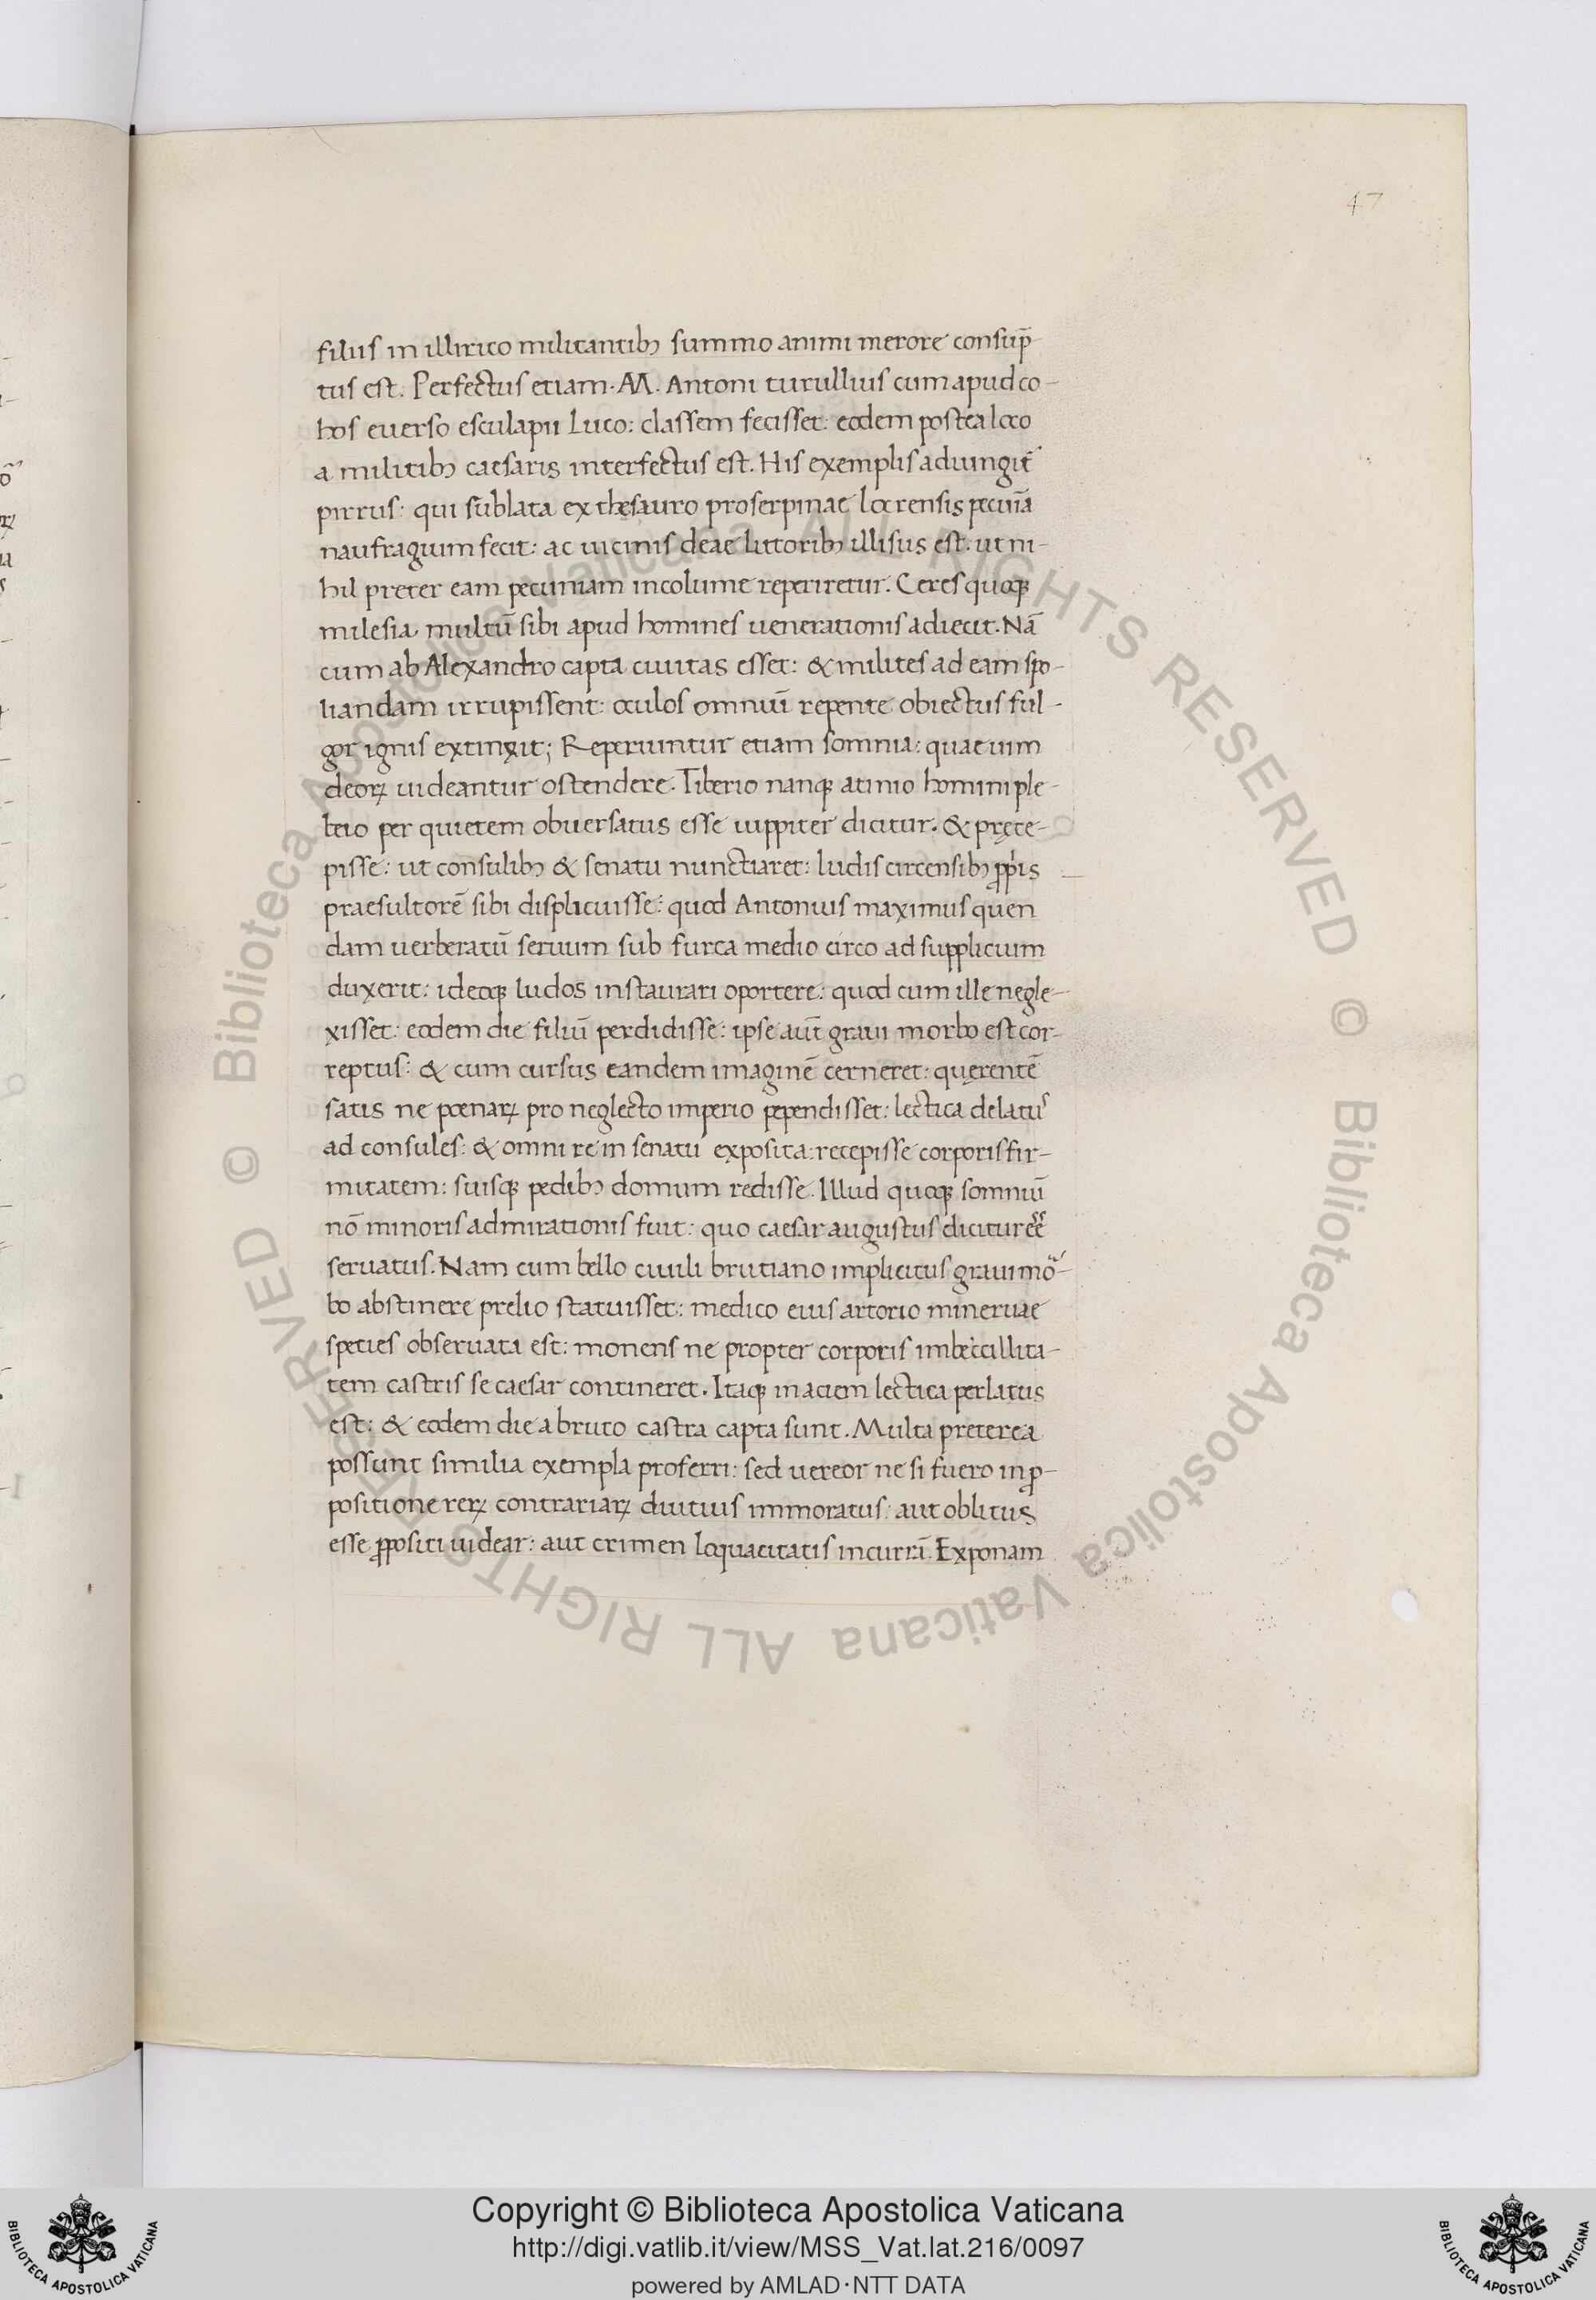 47
filiis in illirico militantibꝫ summo animi merore consup̄
tus est. Perfectus etiam. M. Antoni turullius cum apud co-
hos euerso esculapii Luco: classem fecisset: eodem postea loco
a militibꝫ caesaris interfectus est. His exemplis adiungit̄
pirrus: qui sublata ex thesauro proserpinae locrensis pecuı̄a
naufragium fecit: ac uicinis deae littoribꝫ illisus est. ut ni-
hil preter eam pecuniam incolume reperiretur. Ceres quoqꝫ
milesia multū sibi apud homines uenerationis adiecit. Nā
cum ab Alexandro capta ciuitas esset: & milites ad eam spo-
liandam irrupissent: oculos omniū repente obiectus ful-
gor ignis extinxit; Reperiuntur etiam somnia: quae uim
deoꝝ uideantur ostendere. Tiberio nanqꝫ atinio homini ple-
beio per quietem obuersatus esse iuppiter dicitur. & pręce-
pisse: ut consulibꝫ & senatu nunctiaret: ludis circensibꝫ ꝓpis
praesultorē sibi displicuisse: quod Antonius maximus quen
dam uerberatū seruum sub furca medio circo ad supplicium
duxerit: ideoqꝫ ludos instaurari oportere: quod cum ille negle-
xisset: eodem die filiū perdidisse: ipse aut̄ graui morbo est cor-
reptus: & cum cursus eandem imaginē cerneret: quęrentē
satis ne poenaꝝ pro neglecto imperio pependisset: lectica delatus
ad consules: & omni re in senatu exposita: recepisse corporis fir-
mitatem: suisqꝫ pedibꝫ domum redisse. Illud quoqꝫ somniū
nō minoris admirationis fuit: quo caesar augustus dicitur eē
seruatus. Nam cum bello ciuili brutiano implicitus graui mor-
bo abstinere prelio statuisset: medico eius artorio mineruae
speties obseruata est: monens ne propter corporis imbecillita-
tem castris se caesar contineret. Itaqꝫ in aciem lectica perlatus
est: & eodem die a bruto castra capta sunt. Multa preterea
possunt similia exempla proferri: sed uereor ne si fuero in ꝓ-
positione reꝝ contrariaꝝ diutius immoratus: aut oblitus
esse ꝓpositi uidear: aut crimen loquacitatis incurrā. Exponam
© Biblioteca Apostolica Vaticana ALL RIGHTS RESERVED © Biblioteca Apostolica Vaticana ALL RIGHTS RESERVED
Copyright © Biblioteca Apostolica Vaticana
http://digi.vatlib.it/view/MSS_Vat.lat.216/0097
powered by AMLAD·NTT DATA
BIBLIOTECA APOSTOLICA VATICANA
BIBLIOTECA APOSTOLICA VATICANA